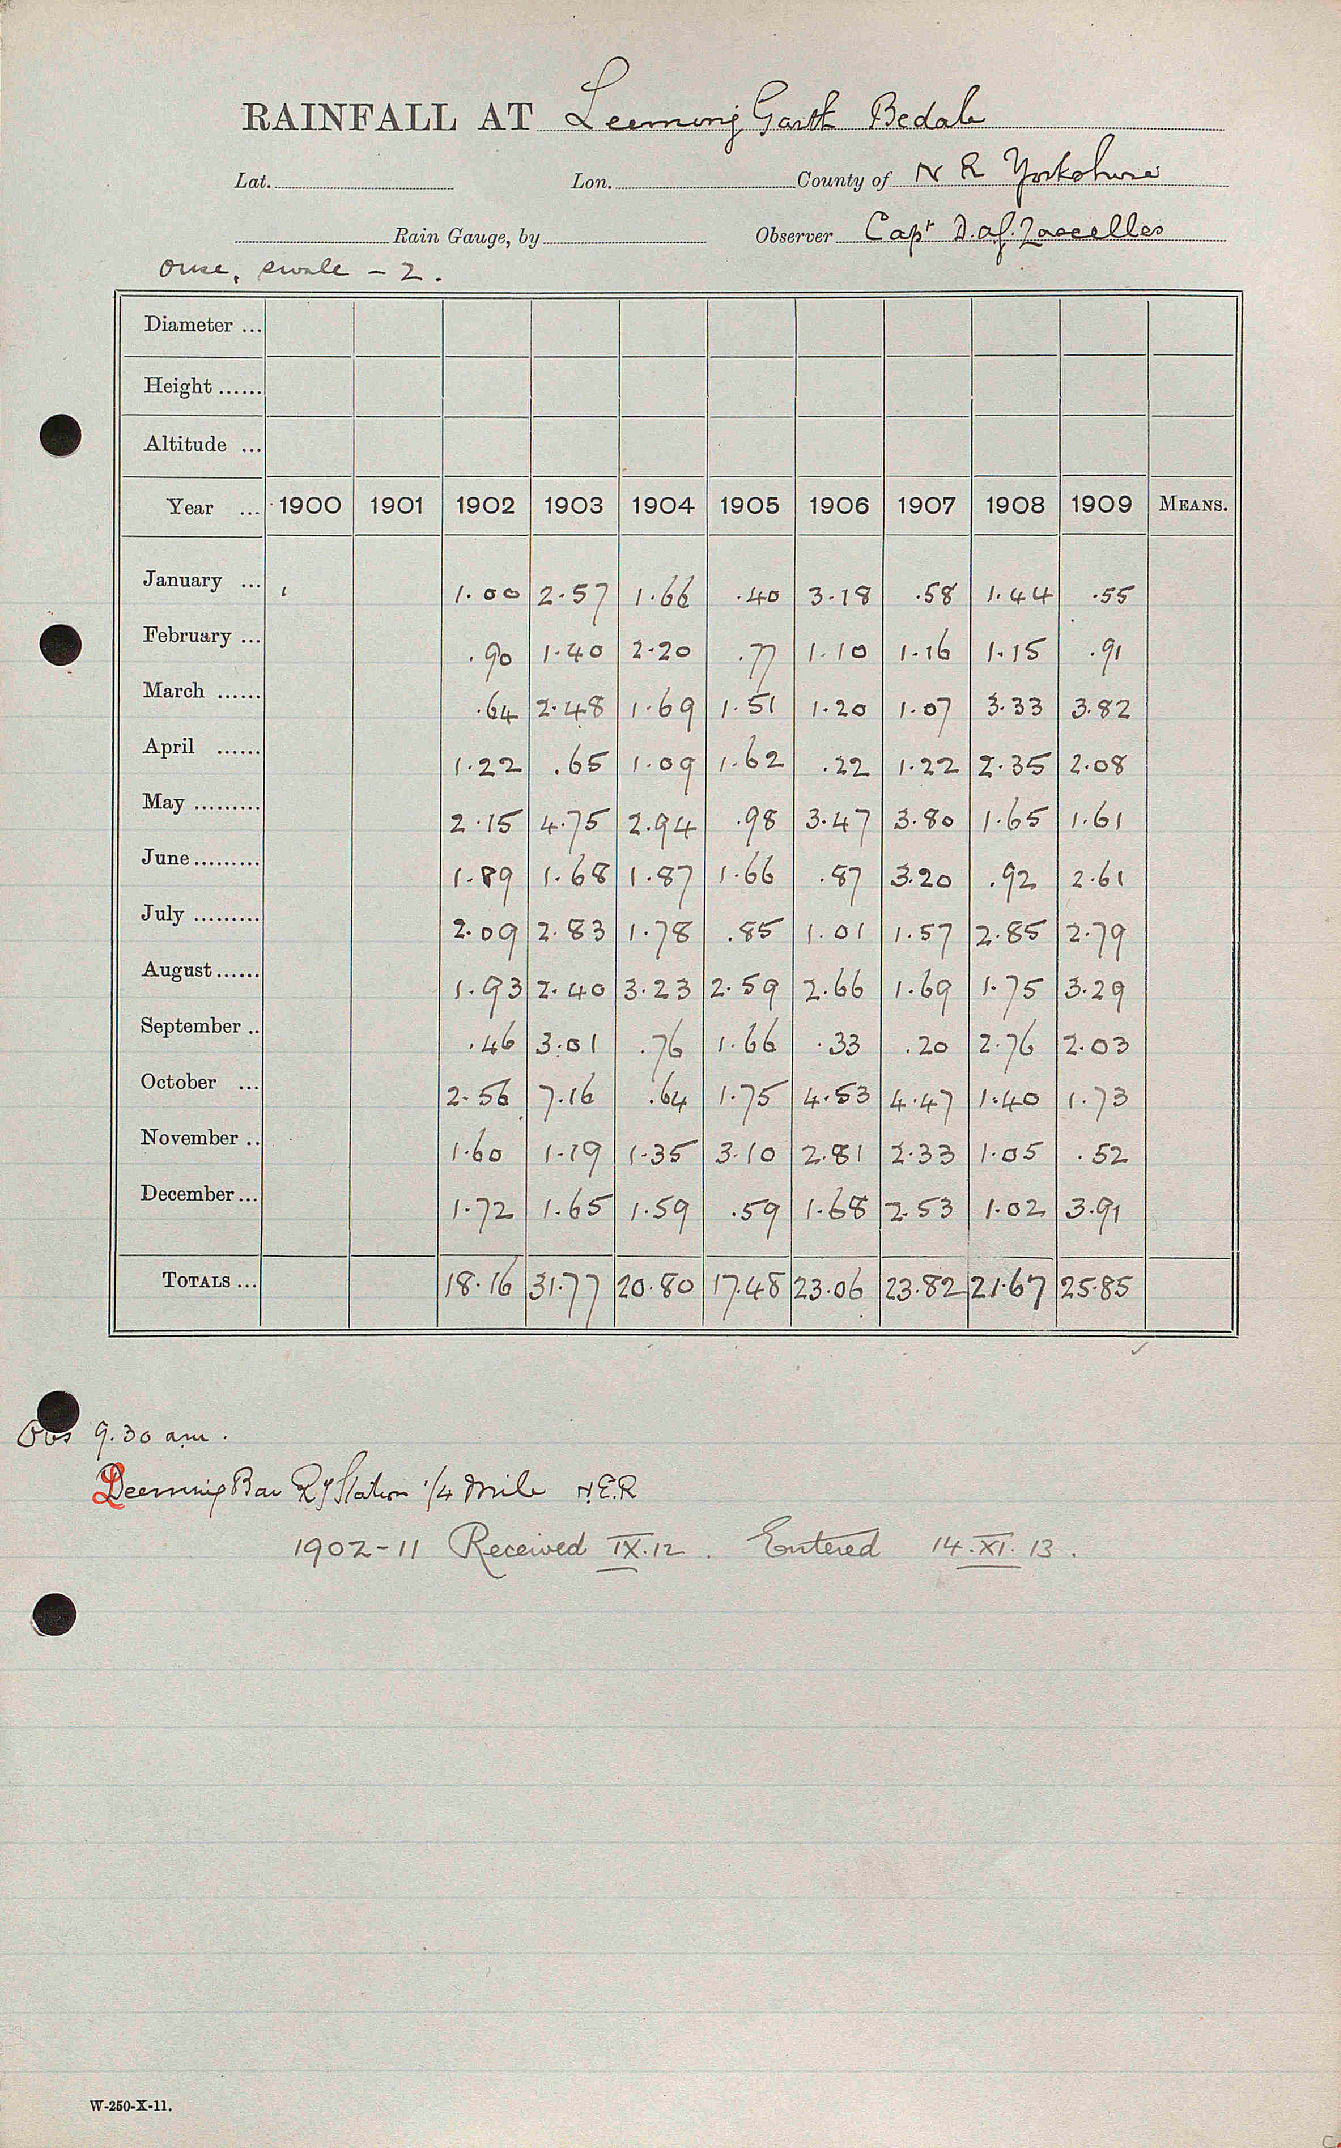 RAINFALL AT Leeming Garth Bedale
Lat. Lon. County of N R Yorkshire
Rain Gauge, by Observer Capt D. A. J. Lascelles
Ouse, Swale - 2.
Diameter ...
Height ......
Altitude ...
Year ... 1900 1901 1902 1903 1904 1905 1906 1907 1908 1909 MEANS.
January ... 1.00 2.57 1.66 .40 3.18 .58 1.44 .55
February ... .90 1.40 2.20 .77 1.10 1.16 1.15 .91
March ...... .64 2.48 1.69 1.51 1.20 1.07 3.33 3.82
April ...... 1.22 .65 1.09 1.62 .22 1.22 2.35 2.08
May ......... 2.15 4.75 2.94 .98 3.47 3.80 1.65 1.61
June......... 1.89 1.68 1.87 1.66 .87 3.20 .92 2.61
July ......... 2.09 2.83 1.78 .85 1.01 1.57 2.85 2.79
August ...... 1.93 2.40 3.23 2.59 2.66 1.69 1.75 3.29
September .. .46 3.01 .76 1.66 .33 .20 2.76 2.03
October ... 2.56 7.16 .64 1.75 4.53 4.47 1.40 1.73
November .. 1.60 1.19 1.35 3.10 2.81 2.33 1.05 .52
December ... 1.72 1.65 1.59 .59 1.68 2.53 1.02 3.91
TOTALS ... 18.16 31.77 20.80 17.48 23.06 23.82 21.67 25.85
Obs 9.30 am.
Leeming Bar Ry Station 1/4 mile N.E.R
1902-11 Received IX.12. Entered 14.XI.13.
W-250-X-11.